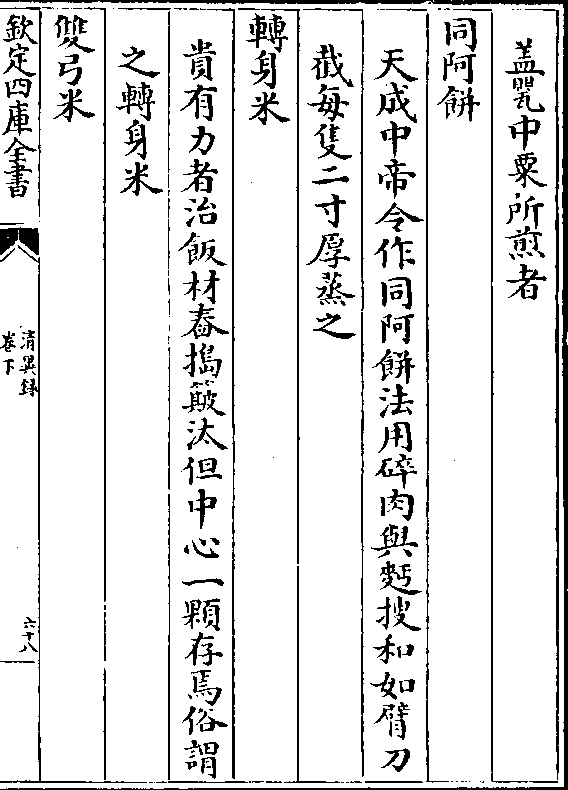 盖甖中粟所煎者
同阿餅
天成中帝令作同阿餅法用碎肉與麪搜和如臂刀
截每隻二寸厚蒸之
轉身米
貴有力者治飯材舂搗簸汰但中心一顆存焉俗謂
之轉身米
雙弓米
欽定四庫全書
清異録
卷下
六十八